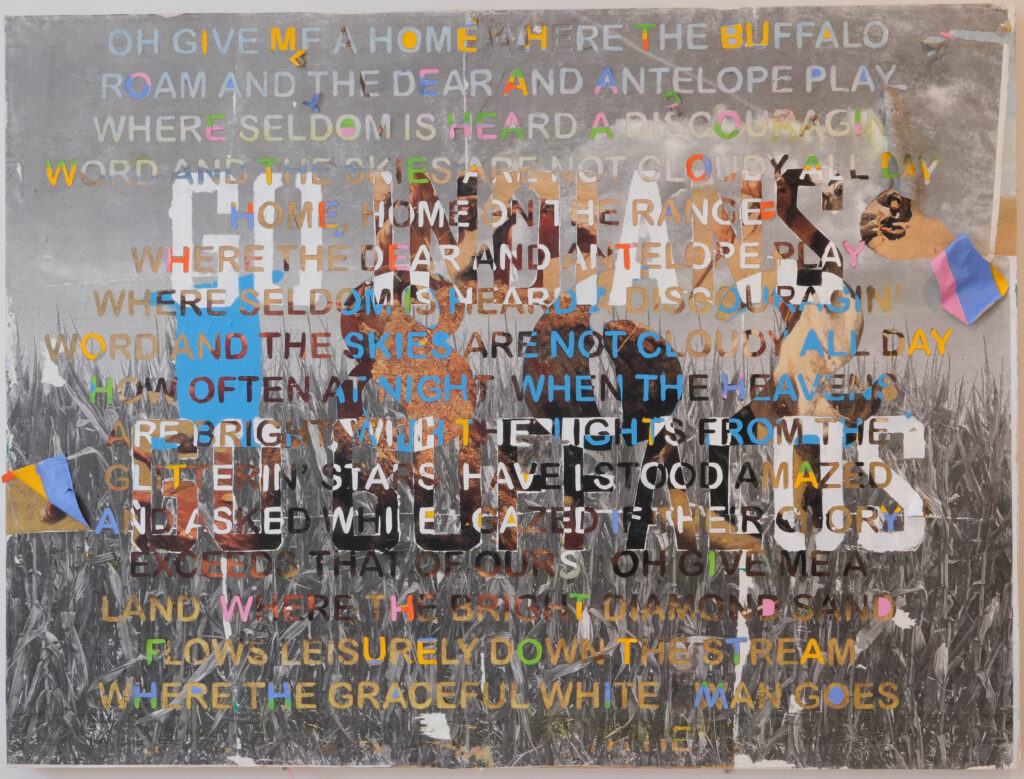 OH GIVE ME A HOME WHERE THE BUFFALO
ROAM AND THE DEAR AND ANTELOPE PLAY
WHERE SELDOM IS HEARD A DISCOURAGIN
WORD AND THE SKIES ARE NOT CLOUDY ALL DAY
GO INDIANS
HOME, HOME ON THE RANGE
WHERE THE DEAR AND ANTELOPE PLAY
WHERE SELDOM IS HEARD A DISCOURAGIN'
WORD AND THE SKIES ARE NOT CLOUDY ALL DAY
HOW OFTEN AT NIGHT WHEN THE HEAVENS
ARE BRIGHT WITH THE LIGHTS FROM THE
GO BUFFALOS
GLITTERIN' STARS HAVE I STOOD AMAZED
AND ASKED WHILE I GAZED IF THEIR GLORY
EXCEEDS THAT OF OURS OH GIVE ME A
LAND WHERE THE BRIGHT DIAMOND SAND
FLOWS LEISURELY DOWN THE STREAM
WHERE THE GRACEFUL WHITE MAN GOES